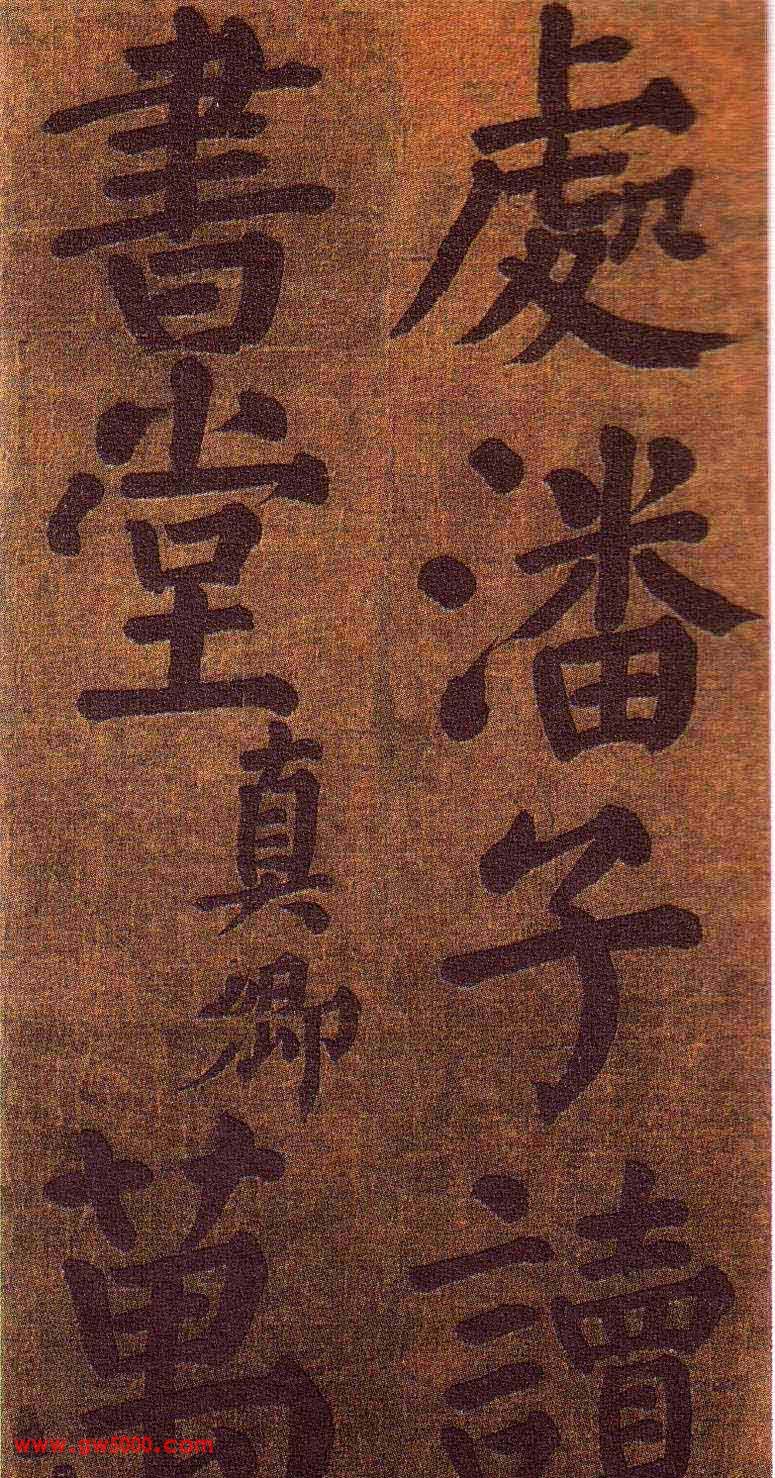 處潘子讀
書堂真卿萬
www.gw5000.com